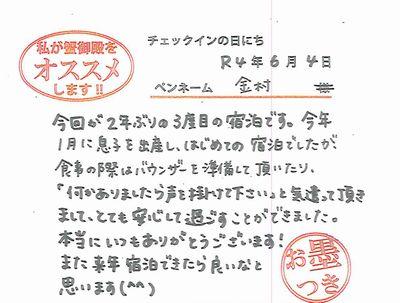 私が蟹御殿を
オススメ
します!!
チェックインの日にち
R4年6月4日
ペンネーム 金村
今回が2年ぶりの3度目の宿泊です。今年
1月に息子を出産し、はじめての宿泊でしたが、
食事の際はバウンサーを準備して頂いたり、
「何かありましたら声を掛けて下さい。」と気遣って頂き
まして、とても安心して過ごすことができました。
本当にいつもありがとうございます!
また来年宿泊できたら良いなと
思います(^^)
お墨
つき